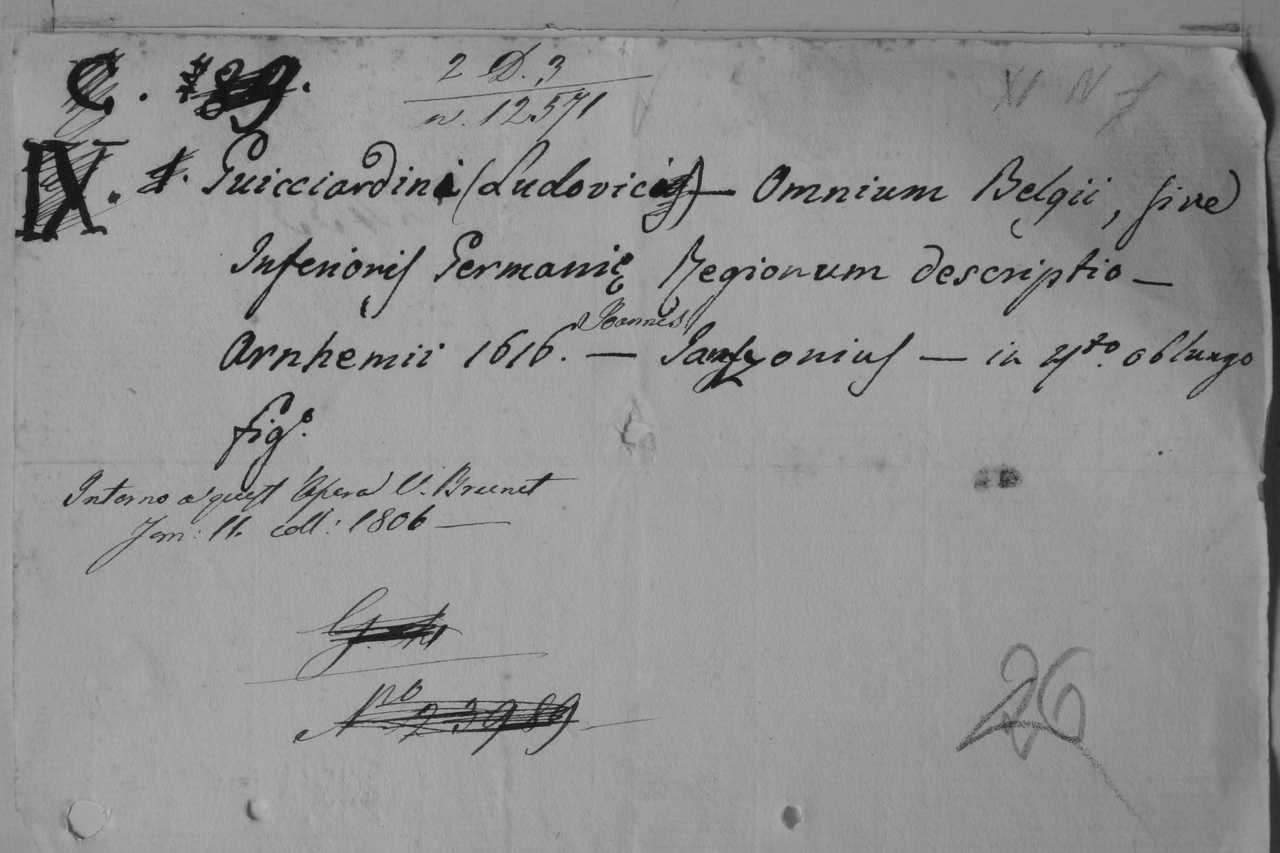 C. 39.
2 D. 3
n. 12571
XI N
IX. 1. Guicciardini (Ludovici) — Omnium Belgii, sive
Inferioris Germanię Regionum descriptio —
Joannes
Arnhemii 1616. — Jansonius — in 4to. oblungo
figo.
Intorno a quest' Opera V. Brunet
Tom: II. coll: 1806 —
No 23989
26